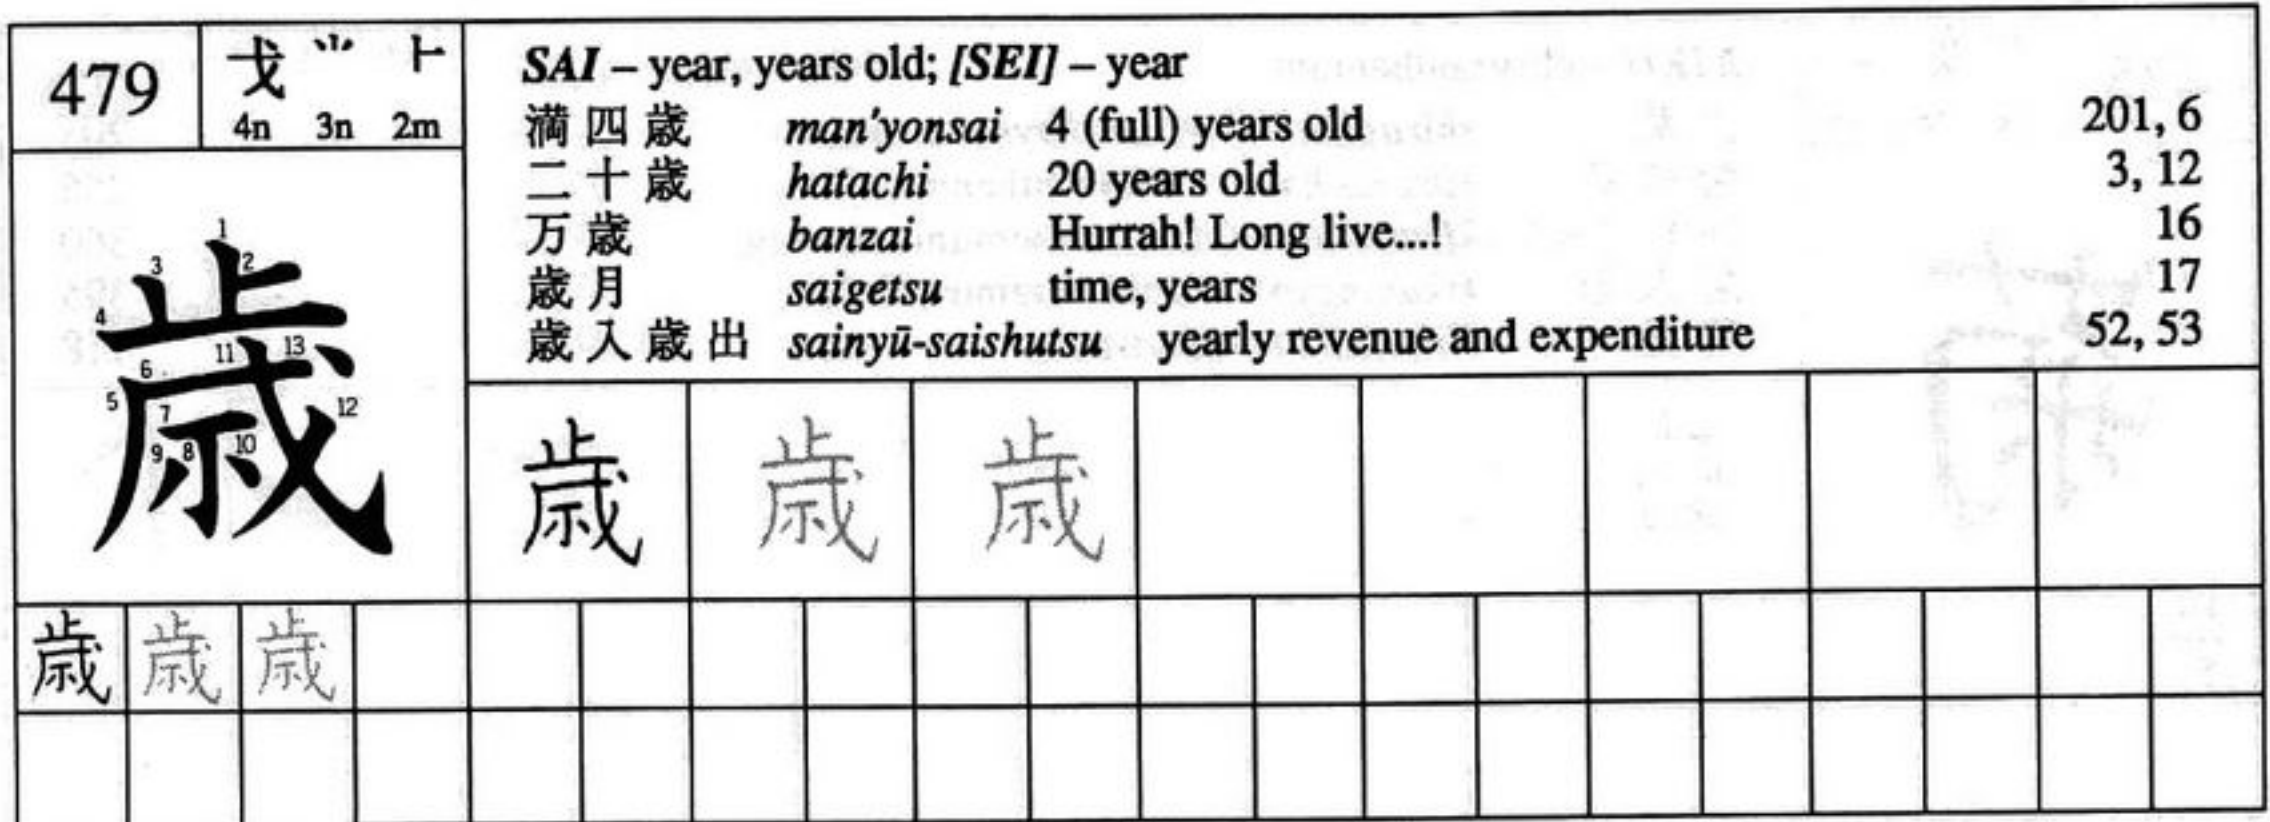 479
戈 ⺌ ⺊
4n 3n 2m
SAI – year, years old; [SEI] – year
満四歳 man'yonsai 4 (full) years old 201, 6
二十歳 hatachi 20 years old 3, 12
万歳 banzai Hurrah! Long live...! 16
歳月 saigetsu time, years 17
歳入歳出 sainyū-saishutsu yearly revenue and expenditure 52, 53
歳
1 2 3 4 5 6 7 8 9 10 11 12 13
歳 歳 歳
歳 歳 歳